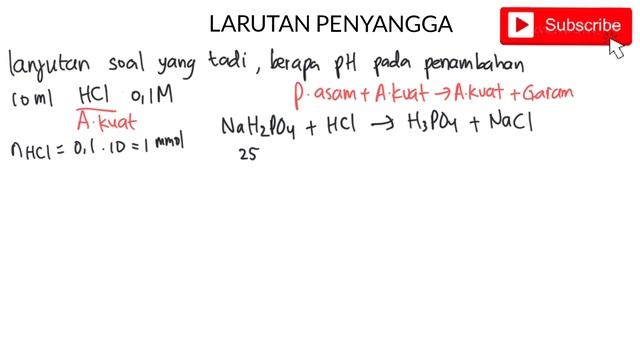 LARUTAN PENYANGGA
Subscribe
lanjutan soal yang tadi, berapa pH pada penambahan
10 ml HCl 0,1M
A.kuat
nHCl = 0,1 . 10 = 1 mmol
P.asam + A.kuat → A.kuat + Garam
NaH₂PO₄ + HCl → H₃PO₄ + NaCl
25